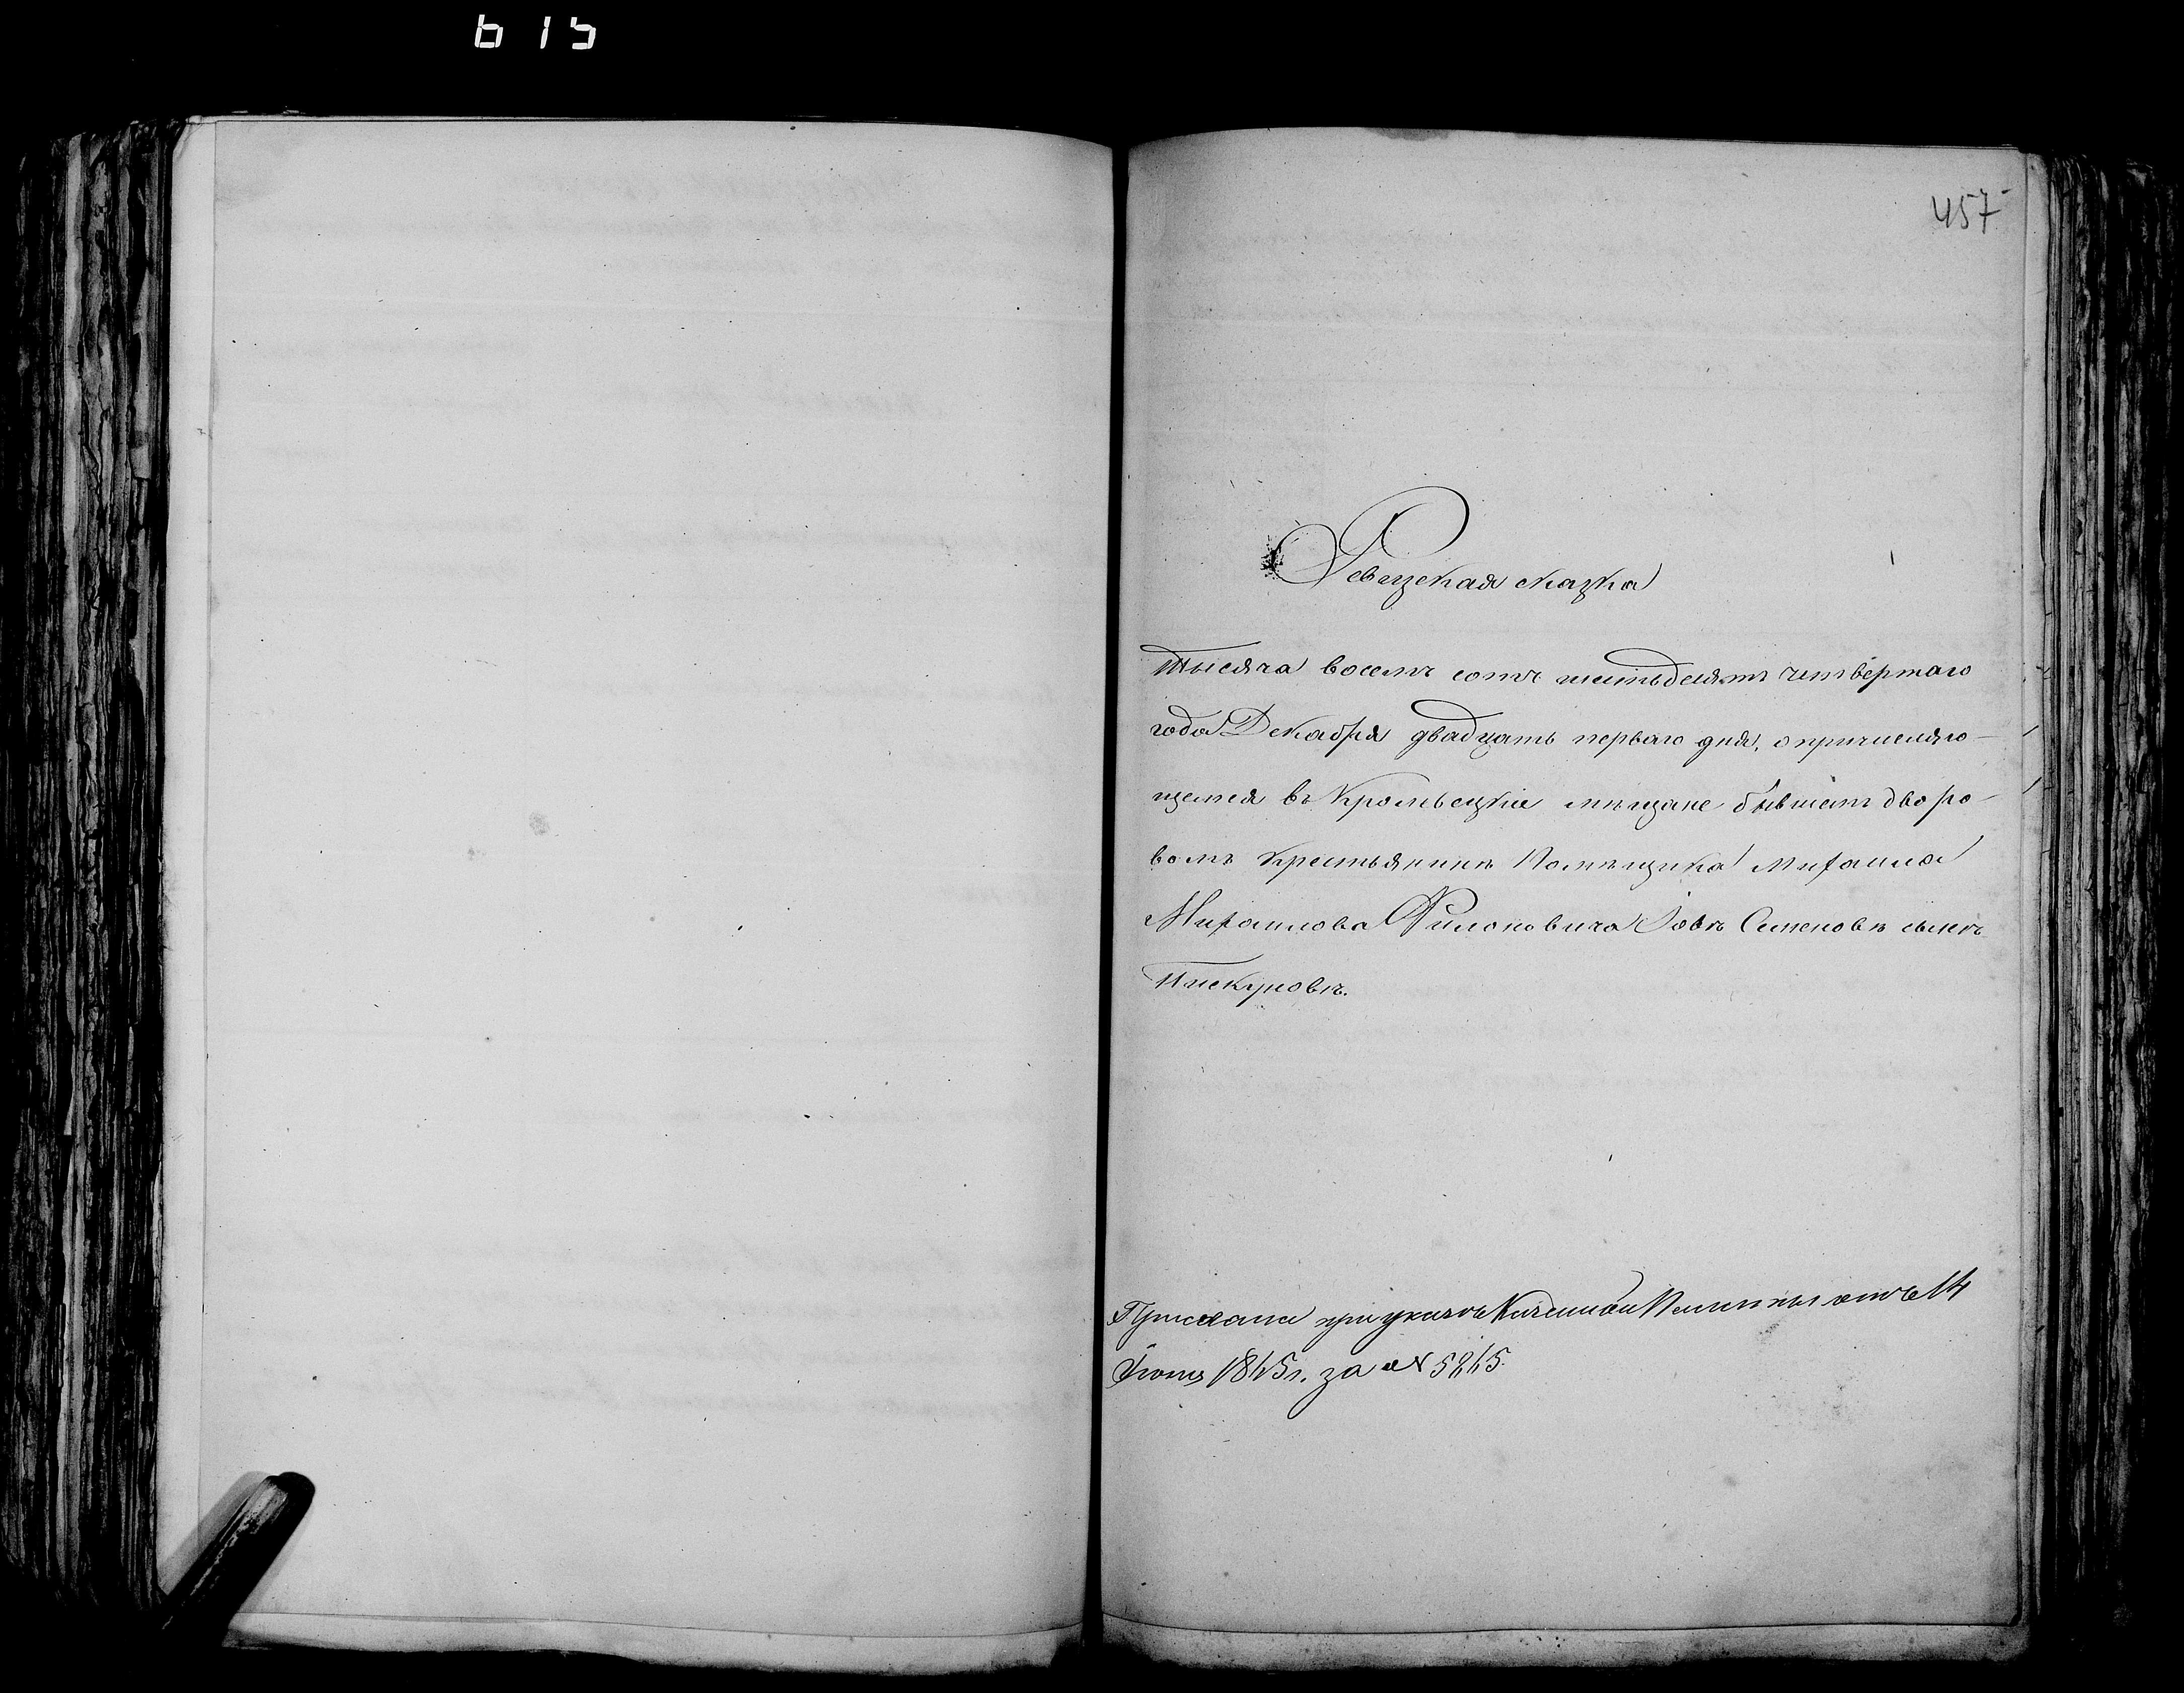 615
457
Ревизская сказка
Тысяча восемъ сотъ шестьдесятъ четвертаго
года Декабря двадцать перваго дня, о причисляю-
щемся въ Кролевецкіе мѣщане бывшемъ дворо-
вомъ крестьянинѣ Помѣщика Михаила
Михаилова Филоновича Іовѣ Семеновѣ сынѣ
Пискуновѣ.
при указѣ Казенной Палаты отъ 14
1865 г. за № 5265.